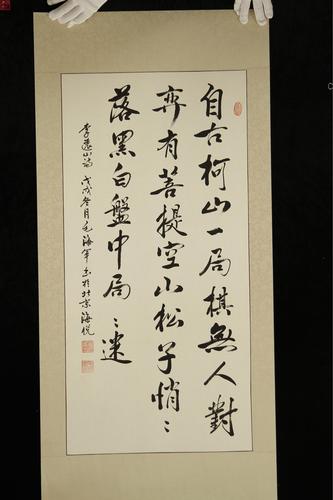 自古柯山一局棋無人對
弈有菩提空山松子悄〻
落黑白盤中局〻迷
李遠山詩 戊戌冬月毛海軍書於北京海悅